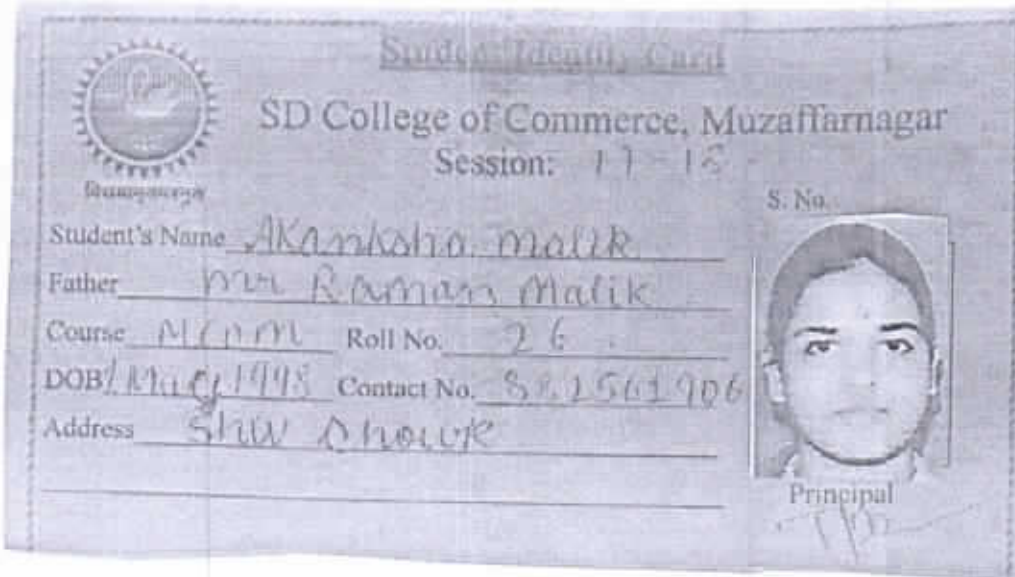 Student Identity Card
SD College of Commerce, Muzaffarnagar
Session: 17-18
S. No.
Student's Name Akanksha Malik
Father Mr Raman Malik
Course M.COM Roll No. 26
DOB May 1998 Contact No.
Address Shiv Chowk
Principal